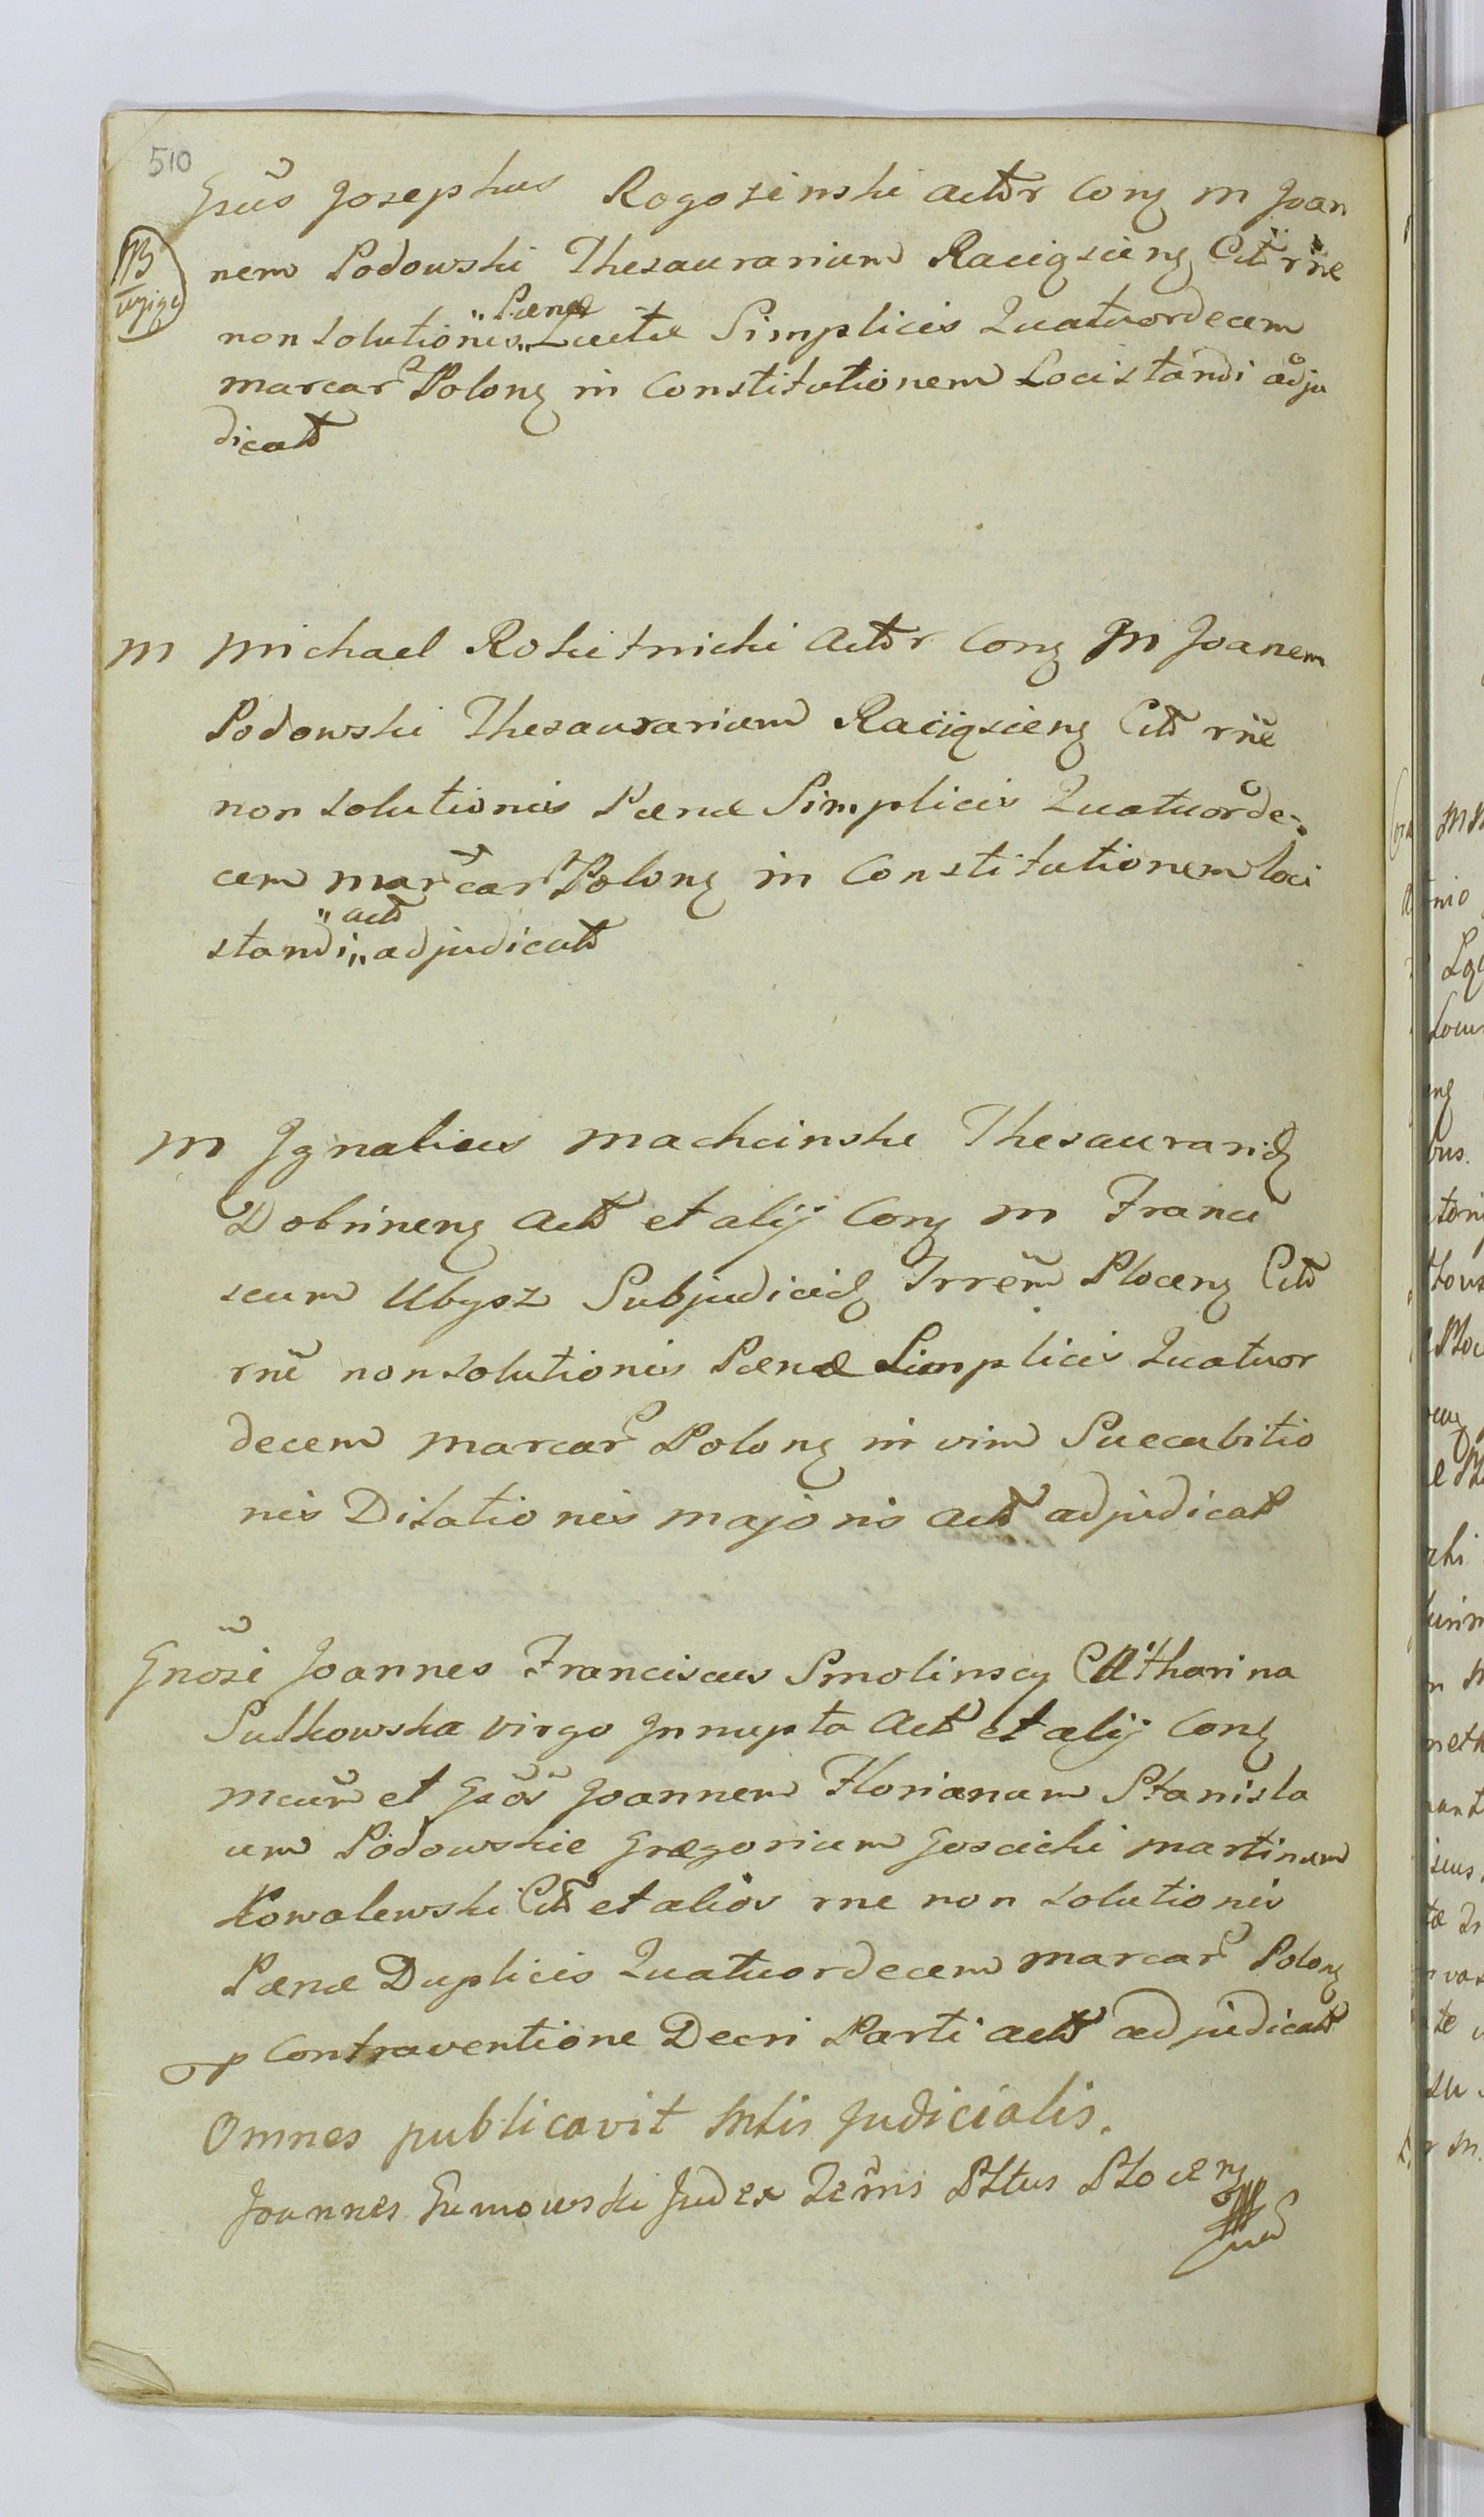 510
Gsus Josephus Rogozinski actor Cong M Joan
nem Podowski Thesaurarium Raciąscieng Citt rne
non solutionis „Pænæ„ Luctæ Simplicis Quatuordecem
marcar Polong in Constitutionem Loci standi adju
dicatt
M Michael Rokitnicki Actor Cong M Joanem
Podowski Thesaurarium Raciąscieng Citt rne
non solutionis Pænæ Simplicis Quatuorde-
cem marcar Polong in Constitutionem loci
standi „actt„ adjudicatt
M Ignatius Machcinski Thesaurarig
Dobrineng Actt et alij Cong M Franci
scum Ubysz Subjudicig Trrem Ploceng Citt
rne non solutionis Pænæ Simplicis Quatuor
decem marcar Polong in vim Succubitio
nis Dilationis majoris actt adjudicatt
Gnosi Joannes Franciscus Smolinscy Catharina
Sulkowska virgo Innupta Actt et alij Cong
Mcum et Gsos Joannem Florianum Stanisla
um Podowskie Gregorium Goscicki Martinum
Kowalewski Citt et alios rne non solutionis
Pænæ Duplicis Quatuordecem marcar Polong
Contraventione Decri Parti actt adjudicatt
Omnes publicavit Mtis Judicialis.
Joannes Gumowski Judex Zems Pttus Ploceng